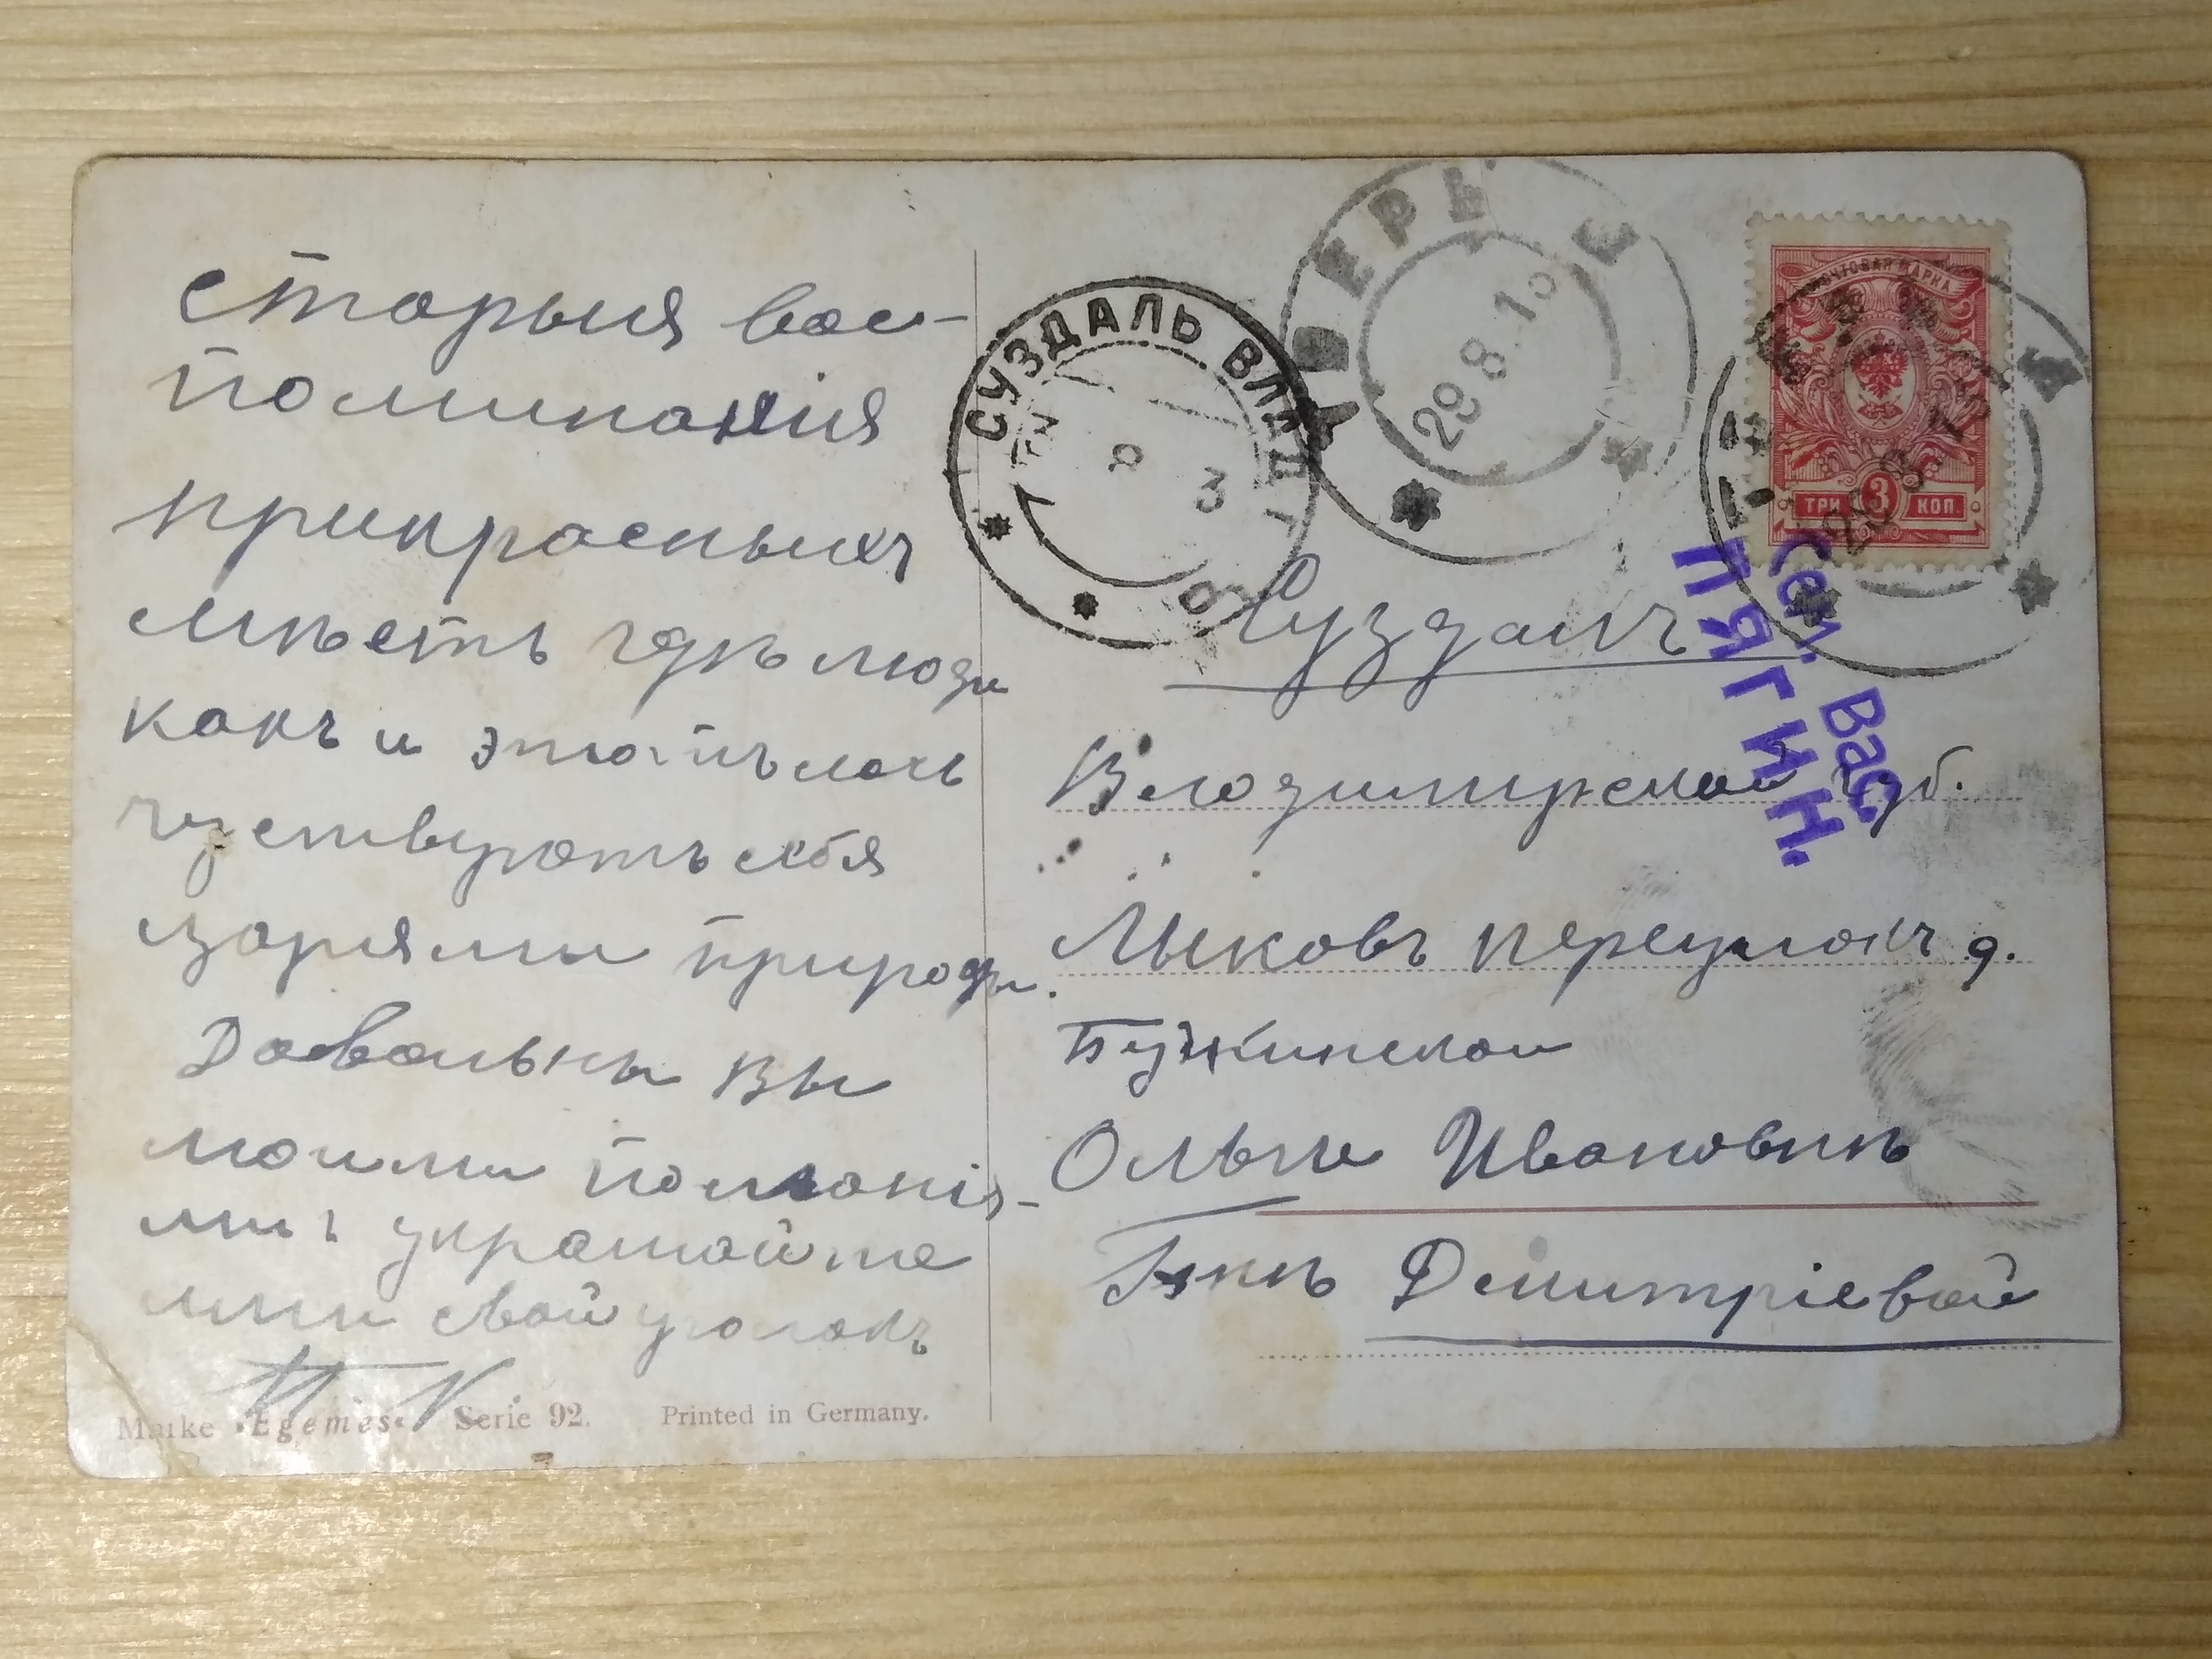 старыя вос-
поминанія
прикрасныхъ
мѣстъ гдѣ люди
какъ и эта
чуствуютъ себя
зорями природы.
Довольны вы
моими
украшайте
ими свой уголокъ
Marke »Egemes« Serie 92. Printed in Germany.
СУЗДАЛЬ ВЛАД.
ТВЕРЬ
29.8.13
ПОЧТОВАЯ МАРКА
ТРИ 3 КОП.
Сем. Вас
ПЯГИН.
Суздаль
Владимирской губ.
Лыковъ переулокъ д.
Бужинской
Ольги Ивановнѣ
Дмитріевой